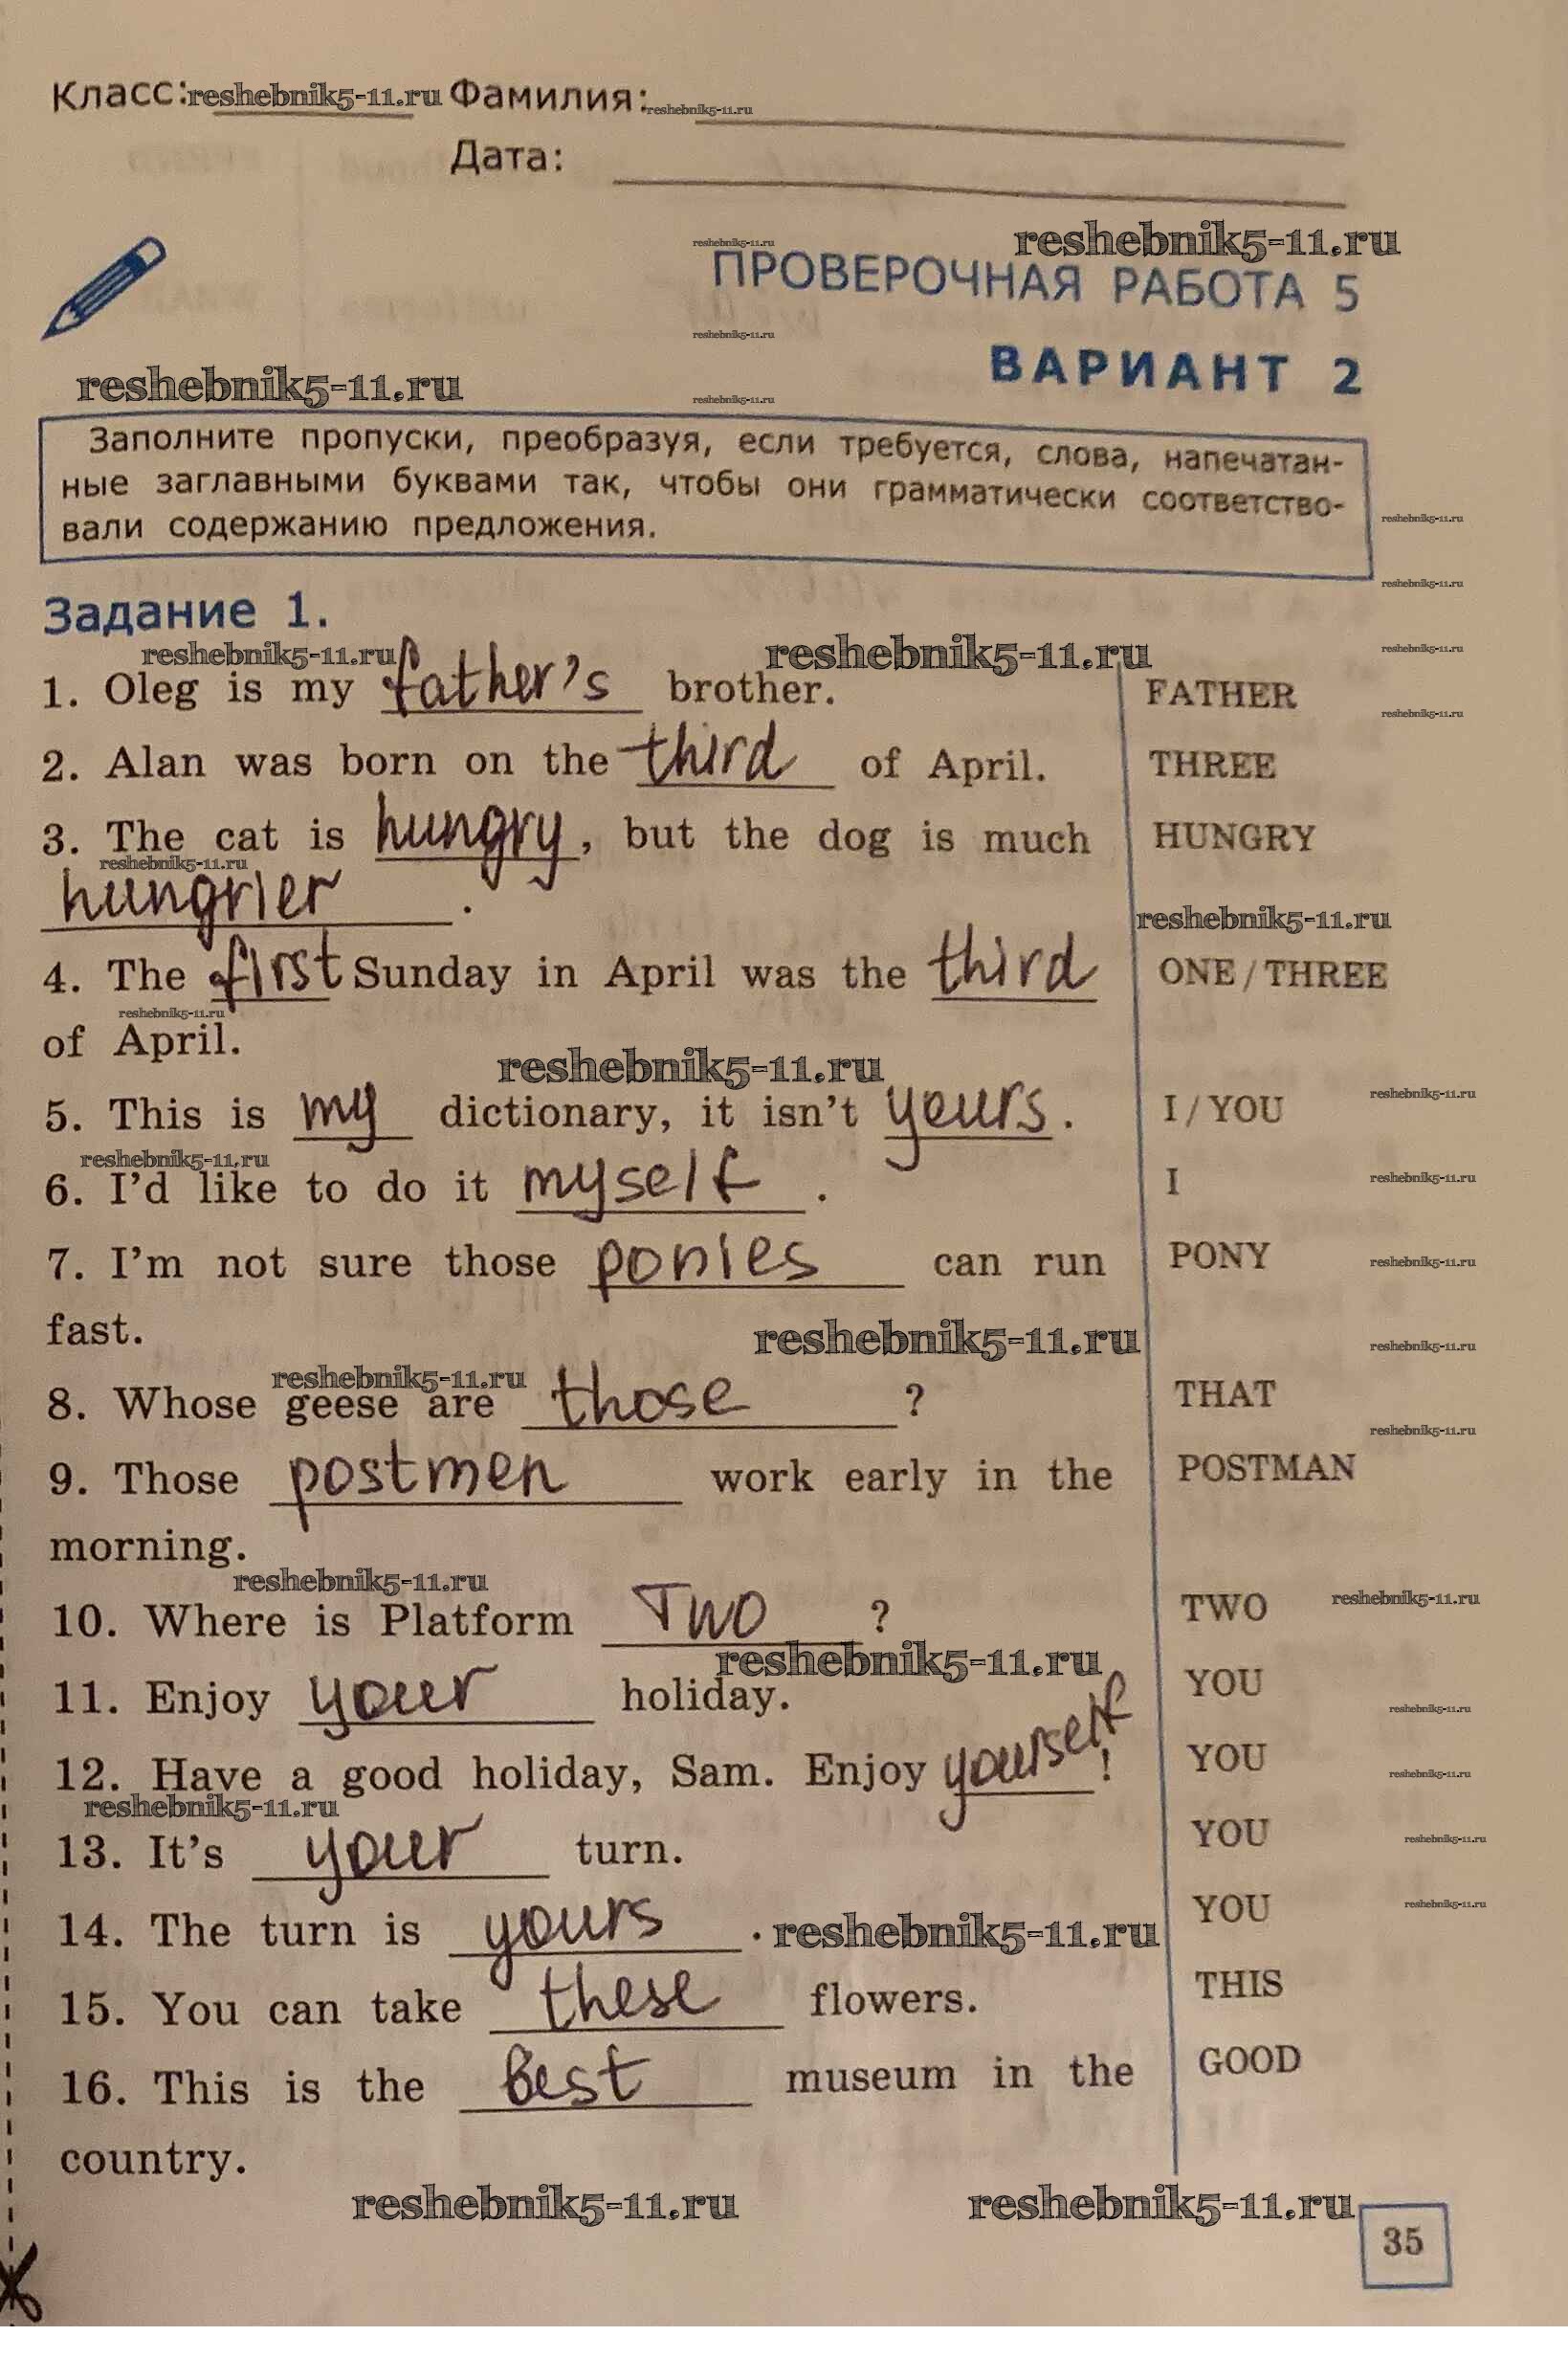 Класс: reshebnik5-11.ru Фамилия: reshebnik5-11.ru
Дата:
reshebnik5-11.ru
reshebnik5-11.ru
ПРОВЕРОЧНАЯ РАБОТА 5
reshebnik5-11.ru
ВАРИАНТ 2
reshebnik5-11.ru
reshebnik5-11.ru
Заполните пропуски, преобразуя, если требуется, слова, напечатан-
ные заглавными буквами так, чтобы они грамматически соответство-
вали содержанию предложения.
reshebnik5-11.ru
reshebnik5-11.ru
Задание 1.
reshebnik5-11.ru reshebnik5-11.ru reshebnik5-11.ru
1. Oleg is my father's brother. FATHER
reshebnik5-11.ru
2. Alan was born on the third of April. THREE
3. The cat is hungry, but the dog is much HUNGRY
reshebnik5-11.ru
hungrier .
reshebnik5-11.ru
4. The first Sunday in April was the third ONE / THREE
reshebnik5-11.ru
of April.
reshebnik5-11.ru
reshebnik5-11.ru
5. This is my dictionary, it isn't yours. I / YOU
reshebnik5-11.ru
reshebnik5-11.ru
6. I'd like to do it myself . I
7. I'm not sure those ponies can run PONY
reshebnik5-11.ru
fast.
reshebnik5-11.ru
reshebnik5-11.ru
reshebnik5-11.ru
8. Whose geese are those ? THAT
reshebnik5-11.ru
9. Those postmen work early in the POSTMAN
morning.
reshebnik5-11.ru
10. Where is Platform Two ? TWO reshebnik5-11.ru
reshebnik5-11.ru
11. Enjoy your holiday. YOU
reshebnik5-11.ru
12. Have a good holiday, Sam. Enjoy yourself! YOU
reshebnik5-11.ru
reshebnik5-11.ru
13. It's your turn. YOU
reshebnik5-11.ru
14. The turn is yours . YOU
reshebnik5-11.ru
reshebnik5-11.ru
15. You can take these flowers. THIS
16. This is the best museum in the GOOD
country.
reshebnik5-11.ru reshebnik5-11.ru
35